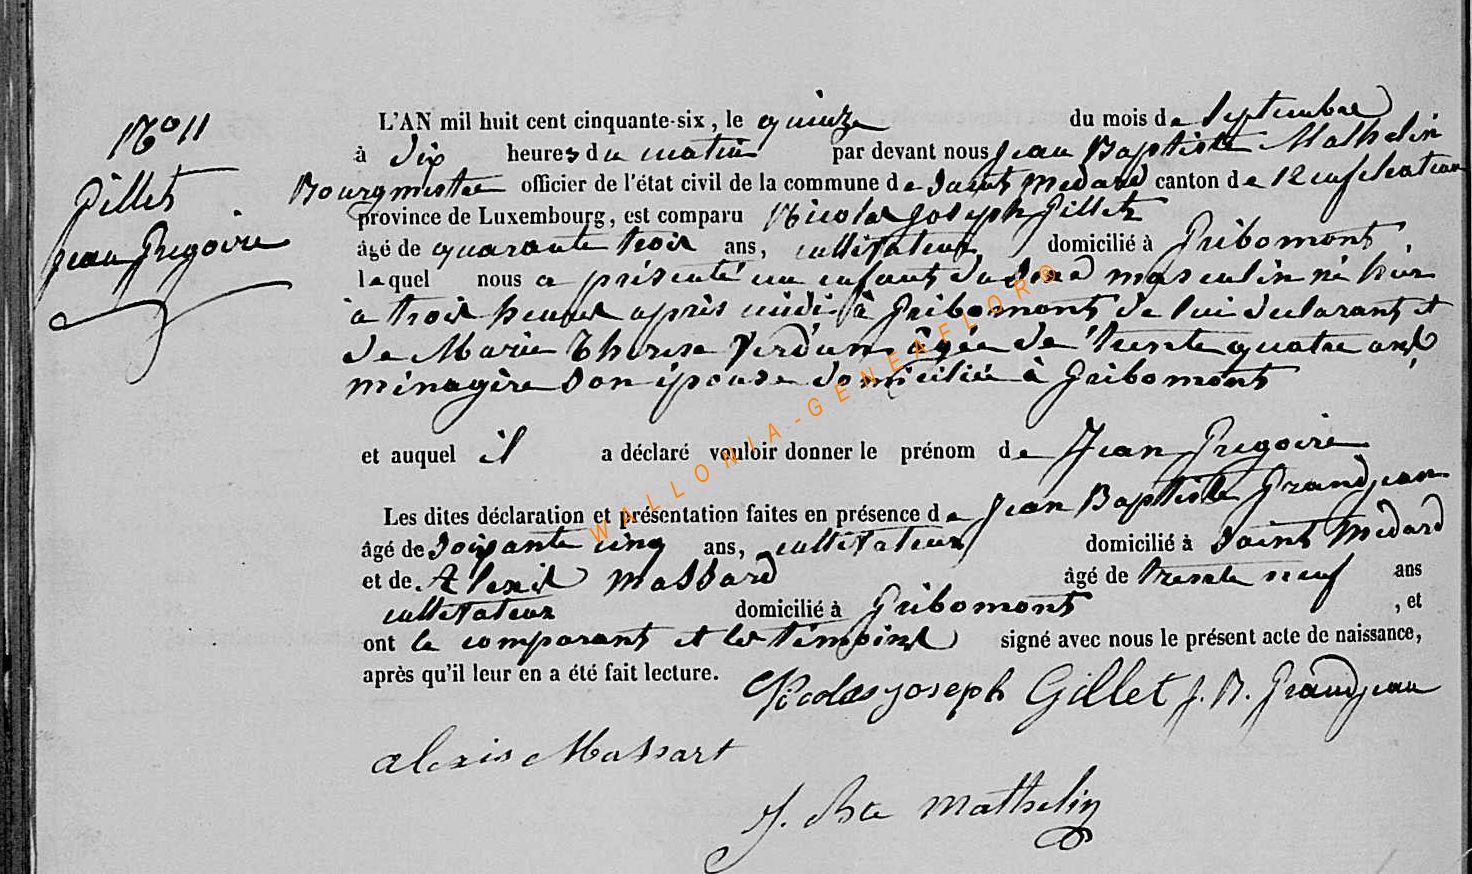 N° 11
Gillet
Jean Grégoire
L'AN mil huit cent cinquante-six, le quinze du mois de Septembre
à dix heures du matin par devant nous Jean Baptiste Mathelin
Bourgmestre officier de l'état civil de la commune de Saint Médard canton de Neufchateau
province de Luxembourg, est comparu Nicolas Joseph Gillet
âgé de quarante trois ans, cultivateur domicilié à Gribomont,
lequel nous a présenté un enfant du sexe masculin né hier
à trois heures après midi à Gribomont de lui déclarant et
de Marie Thérèse Verdun âgée de trente quatre ans
ménagère son épouse domiciliée à Gribomont
et auquel il a déclaré vouloir donner le prénom de Jean Grégoire
Les dites déclaration et présentation faites en présence de Jean Baptiste Grandjean
âgé de soixante cinq ans, cultivateur domicilié à Saint Médard
et de Alexis Massard âgé de trente neuf ans
cultivateur domicilié à Gribomont, et
ont le comparant et les témoins signé avec nous le présent acte de naissance,
après qu'il leur en a été fait lecture.
Nicolas joseph Gillet J. B. Grandjean
alexis Massart
J. Bte Mathelin
WALLONIA-GENEAFLOR©